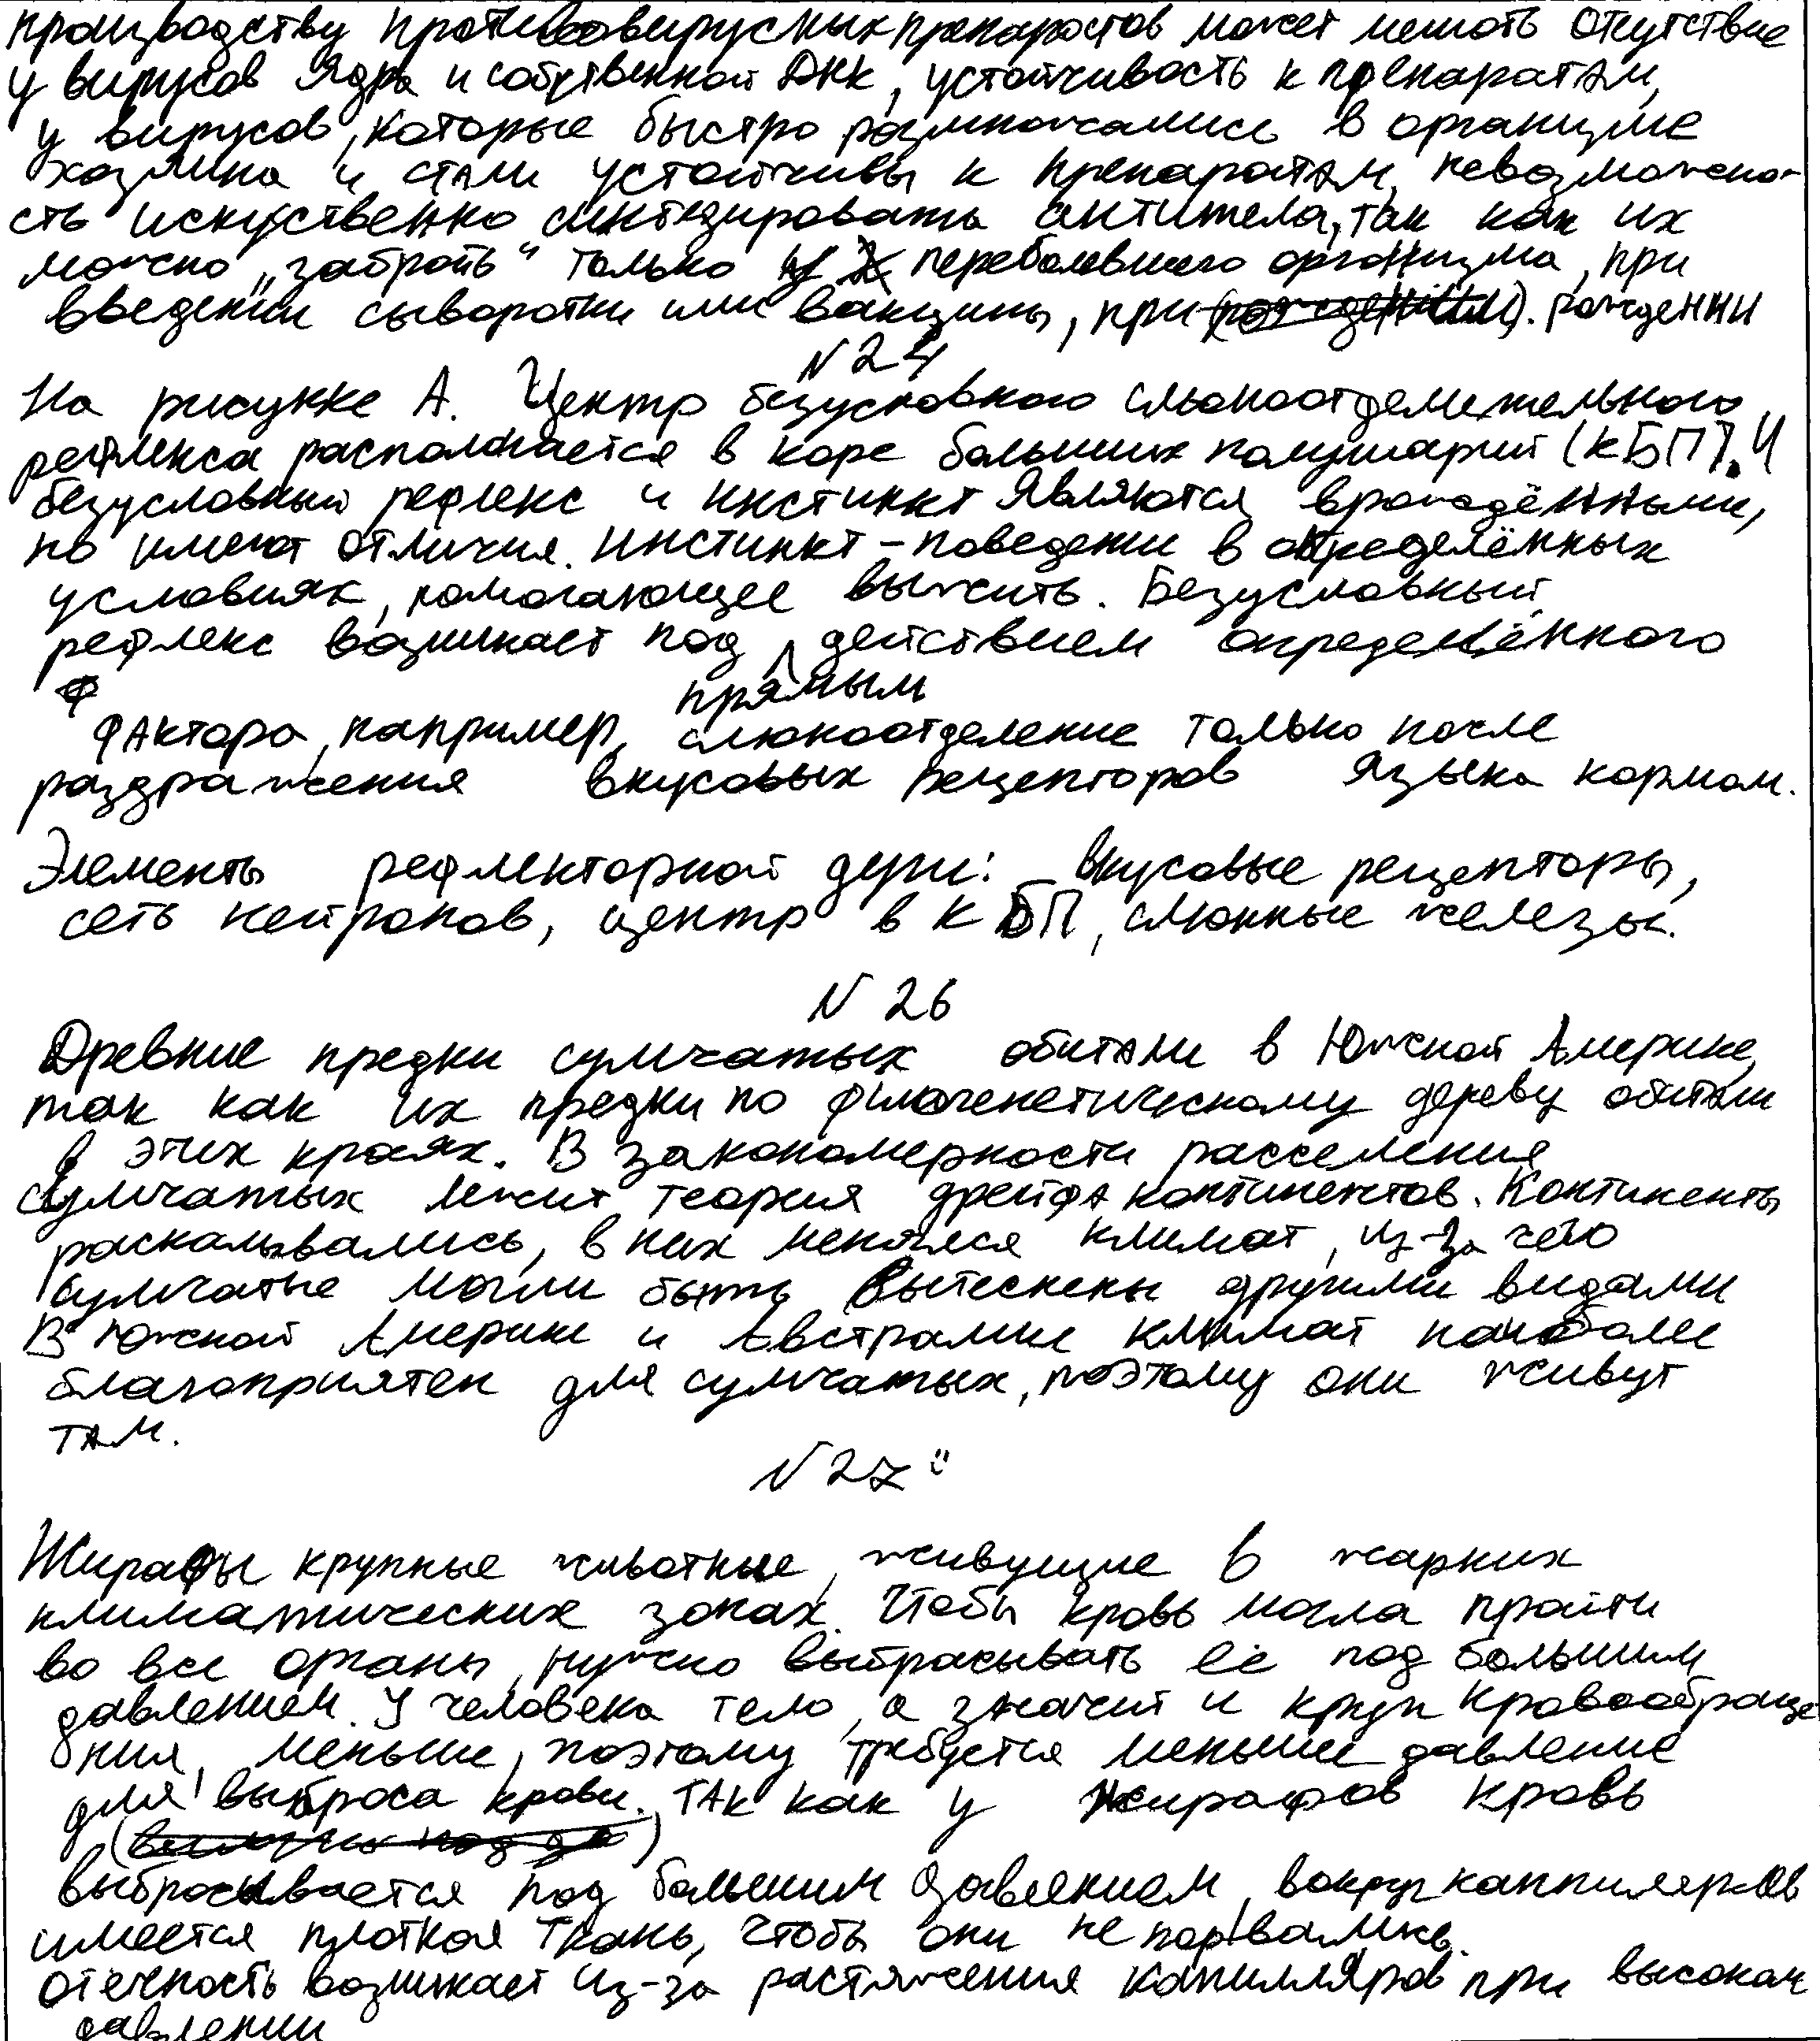 производству противовирусных препаратов может мешать отсутствие
у вирусов ядра и собственной ДНК, устойчивость к препаратам,
у вирусов, которые быстро размножались в организме
хозяина и стали устойчивы к препаратам, невозможно-
сть искуственно синтезировать антитела, так как их
можно „забрать" только из переболевшего организма, при
введении сыворотки или вакцины, при рождении
N 24
На рисунке А. Центр безусловного слюноотделительного
рефлекса располагается в коре больших полушарий (КБП). И
безусловный рефлекс и инстинкт являются врождёнными,
но имеют отличия. Инстинкт – поведение в определённых
условиях, помогающее выжить. Безусловный
рефлекс возникает под действием определённого
прямым
фактора, например, слюноотделение только после
раздражения вкусовых рецепторов языка кормом.
Элементы рефлекторной дуги: вкусовые рецепторы,
сеть нейронов, центр в КБП, слюнные железы.
N 26
Древние предки сумчатых обитали в Южной Америке,
так как их предки по филогенетическому дереву обитали
в этих краях. В закономерности расселения
сумчатых лежит теория дрейфа континентов. Континенты
раскалывались, в них менялся климат, из-за чего
сумчатые могли быть вытеснены другими видами
В Южной Америке и Австралии климат наиболее
благоприятен для сумчатых, поэтому они живут
там.
N 27
Жирафы крупные животные, живущие в жарких
климатических зонах. Чтобы кровь могла пройти
во все органы, нужно выбрасывать её под большим
давлением. У человека тело, а значит и круги кровообраще
ния, меньше, поэтому требуется меньшее давление
для выброса крови. Так как у жирафов кровь
выбрасывается под большим давлением, вокруг каппиляров
имеется плотная ткань, чтобы они не порвались.
Отечность возникает из-за растяжения капилляров при высоком
давлении